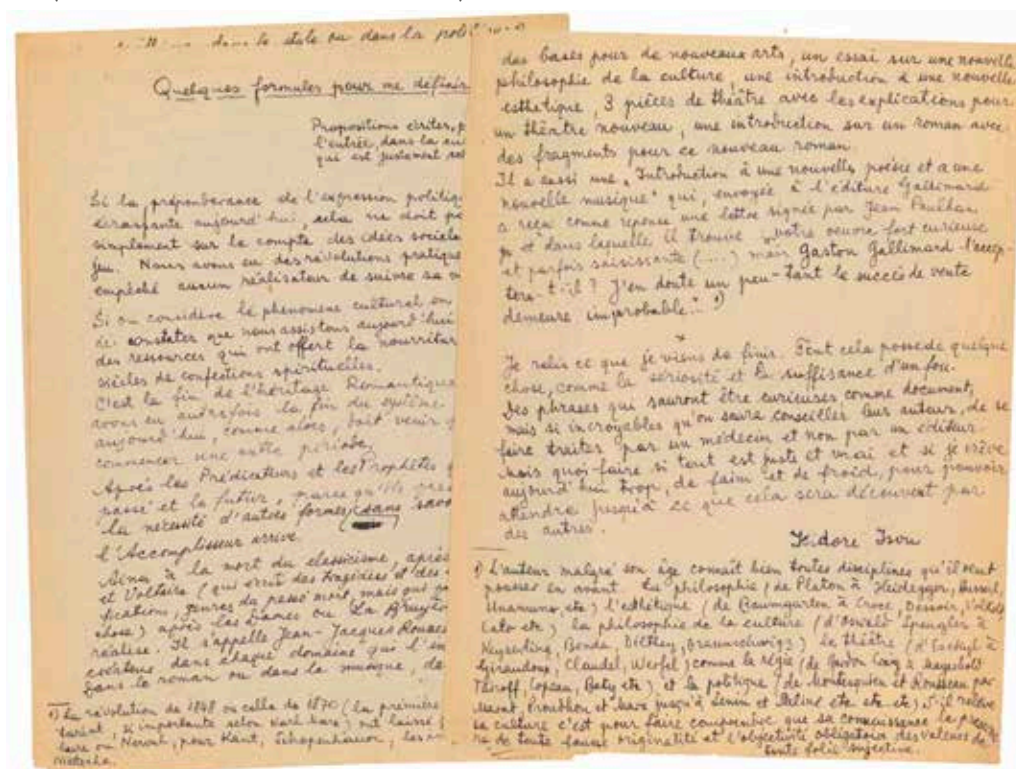 dans le stale ou dans la poli
Quelques formules pour me définir
Propositions écrites, p
l'entrée, dans la cu
qui est justement
Si la préponderance de l'expression politiq
écrasante aujourd'hui, cela ne doit p
simplement sur le compte des idées sociale
jeu. Nous avons eu des révolutions pratique
empêché aucun réalisateur de suivre sa
Si on considère le phénomène cultural en
de constater que nous assistons aujourd'hui
des ressources qui ont offert la nourritur
siècles de confections spirituelles.
C'est la fin de l'héritage Romantique
avons eu autrefois la fin du système
aujourd'hui, comme alors, doit venir
commencer une autre période.
Après les Prédicateurs et les Prophètes
passé et la futur, parce qu'ils
la nécessité d'autres formes (sans savo
l'Accomplisseur arrive.
Ainsi à la mort du classicisme, après
et Voltaire (qui écrit des tragédies et des
fications, genres du passé mort, mais qui
chose) après les Dames ou La Bruyère
réalise. Il s'appelle Jean-Jacques Rousse
créateur dans chaque domaine que l'
dans le roman ou dans la musique, da
1) La révolution de 1848 ou celle de 1870 (la première
tariat, si importante selon Karl Marx) ont laissé
laire ou Nerval, pour Kant, Schopenhauer, les
Nietzsche.
des bases pour de nouveaux arts, un essai sur une nouvelle
philosophie de la culture, une introduction à une nouvelle
esthetique, 3 pièces de théâtre avec les explications pour
un théâtre nouveau, une introduction sur un roman avec
des fragments pour ce nouveau roman.
Il a aussi une „Introduction à une nouvelle poésie et a une
nouvelle musique" qui, envoyée à l'éditure Gallimard
a reçu comme reponse une lettre signée par Jean Paulhan
et dans laquelle il trouve „votre oeuvre fort curieuse
et parfois saisissante (....) mais Gaston Gallimard l'accep-
tera-t-il? J'en doute un peu-tant le succès de vente
demeure improbable." 1)
*
Je relis ce que je viens de finir. Tout cela possede quelque
chose, comme la sériosité et la suffisance d'un fou.
Des phrases qui sauront être curieuses comme document,
mais si incroyables qu'on saura conseiller leur auteur, de se
faire traiter par un médecin et non par un éditeur.
Mais quoi faire si tout est juste et vrai et si je crève
aujourd'hui trop, de faim et de froid, pour pouvoir
attendre jusqu'à ce que cela sera découvert par
des autres.
Isidore Isou
1) L'auteur malgré son âge connaît bien toutes disciplines qu'il veut
pousser en avant. La philosophie (de Platon à Heidegger, Husserl,
Unamuno etc) l'esthétique (de Baumgarten à Croce, Dessoir,
etc) la philosophie de la culture (d'Oswald Spengler à
Keyserling, Benda, Dilthey, Braunschwig) le théâtre (d'Eschyl à
Giraudoux, Claudel, Werfel) comme la régie (de Gordon Craig à Mayerhold
Taïroff, Copeau, Baty etc) et la politique (de Montesquieu et Rousseau par
Marat, Proudhon et Marx jusqu'à Lenin et Staline etc etc etc) S'il relève
sa culture c'est pour faire comprendre que sa connaissance la
ra de toute fausse originalité et l'objectivité obligatoire des valeurs de
toute folie subjective.